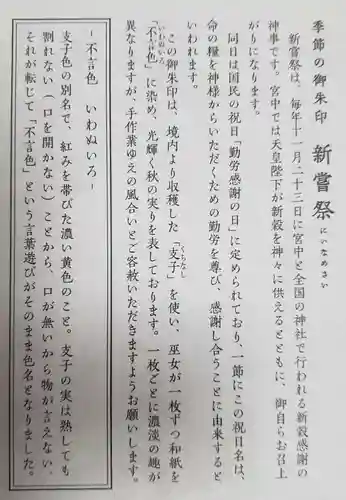 季節の御朱印 新嘗祭
にいなめさい
新嘗祭は、毎年十一月二十三日に宮中と全国の神社で行われる新穀感謝の
神事です。宮中では天皇陛下が新穀を神々に供えるとともに、御自らお召上
がりになります。
同日は国民の祝日「勤労感謝の日」に定められており、一節にこの祝日名は、
命の糧を神様からいただくための勤労を尊び、感謝し合うことに由来すると
いわれます。
この御朱印は、境内より収穫した「支子」を使い、巫女が一枚ずつ和紙を
くちなし
「不言色」に染め、光輝く秋の実りを表しております。一枚ごとに濃淡の趣が
いわぬいろ
異なりますが、手作業ゆえの風合いとご容赦いただきますようお願いします。
－不言色 いわぬいろ－
支子色の別名で、紅みを帯びた濃い黄色のこと。支子の実は熟しても
割れない（口を開かない）ことから、口が無いから物が言えない、
それが転じて「不言色」という言葉遊びがそのまま色名となりました。